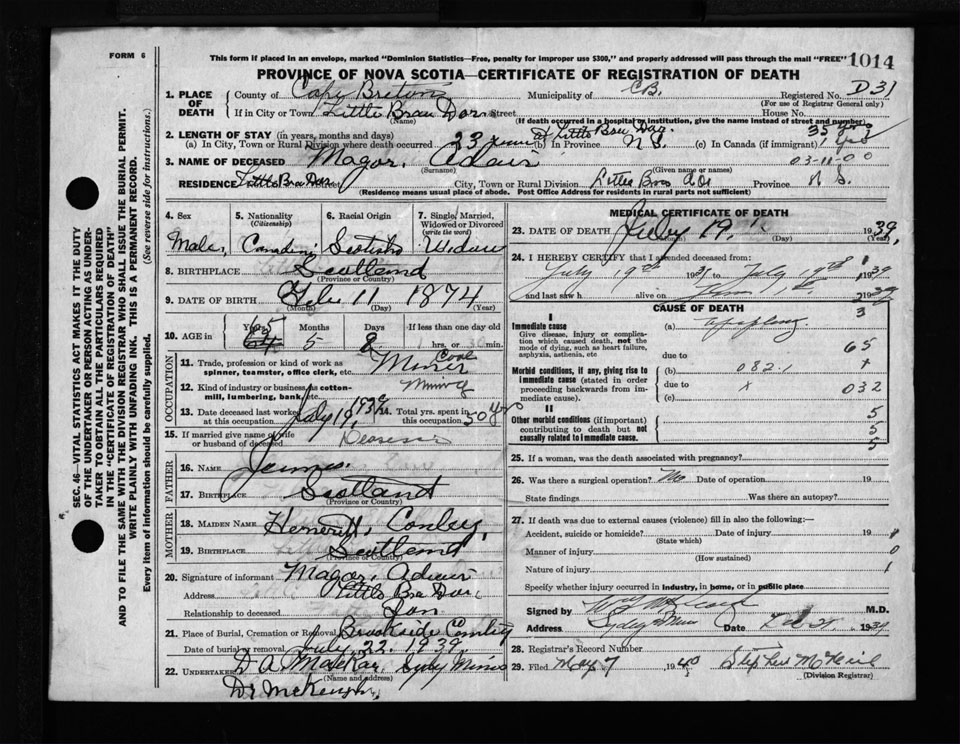 FORM 6
This form if placed in an envelope, marked "Dominion Statistics—Free, penalty for improper use $300," and properly addressed will pass through the mail "FREE" 1014
PROVINCE OF NOVA SCOTIA—CERTIFICATE OF REGISTRATION OF DEATH
SEC. 46—VITAL STATISTICS ACT MAKES IT THE DUTY
OF THE UNDERTAKER OR PERSON ACTING AS UNDER-
TAKER TO OBTAIN ALL THE PARTICULARS REQUIRED
IN THE "CERTIFICATE OF REGISTRATION OF DEATH"
AND TO FILE THE SAME WITH THE DIVISION REGISTRAR WHO SHALL ISSUE THE BURIAL PERMIT.
WRITE PLAINLY WITH UNFADING INK. THIS IS A PERMANENT RECORD.
Every item of information should be carefully supplied. (See reverse side for instructions.)
1. PLACE OF DEATH County of Cape Breton Municipality of C.B. Registered No. D31
(For use of Registrar General only)
If in City or Town Little Bras Dor Street House No.
(Name) (If death occurred in a hospital or institution, give the name instead of street and number)
2. LENGTH OF STAY (in years, months and days)
(a) In City, Town or Rural Division where death occurred 23 (b) In Province N S. (c) In Canada (if immigrant) 35
3. NAME OF DECEASED Magor. Adair 03-11-00
(Surname) (Given name or names)
RESIDENCE Little Bra Dor City, Town or Rural Division Little Bras Province N S.
(Residence means usual place of abode. Post Office Address for residents in rural parts not sufficient)
4. Sex 5. Nationality (Citizenship) 6. Racial Origin 7. Single, Married, Widowed or Divorced (write the word)
Male, Scotish
8. BIRTHPLACE Scotland
(Province or Country)
9. DATE OF BIRTH Feb 11 1874
(Month) (Day) (Year)
10. AGE in Years Months Days If less than one day old
65 64 5 8 hrs. or min.
OCCUPATION
11. Trade, profession or kind of work as spinner, teamster, office clerk, etc. Coal Miner
12. Kind of industry or business, as cotton-mill, lumbering, bank, etc. Mining
13. Date deceased last worked at this occupation July 19, 1939 14. Total yrs. spent in this occupation 50
15. If married give name of wife or husband of deceased
FATHER
16. NAME James.
17. BIRTHPLACE Scotland
(Province or Country)
MOTHER
18. MAIDEN NAME Conley,
19. BIRTHPLACE Scotland
(Province or Country)
20. Signature of informant Magor. Adair
Address Little Bra Dor
Relationship to deceased Son
21. Place of Burial, Cremation or Removal Brookside
Date of burial or removal July 22. 1939.
22. UNDERTAKER D A Sydney Mines
(Name and address)
Dr McKenzie,
MEDICAL CERTIFICATE OF DEATH
23. DATE OF DEATH July 19. 1939,
(Day) (Year)
24. I HEREBY CERTIFY that I attended deceased from:
July 19th 19 to July 19th 1939
and last saw h alive on 1939
CAUSE OF DEATH
I
Immediate cause (a) 3
Give disease, injury or complication which caused death, not the mode of dying, such as heart failure, asphyxia, asthenia, etc
65
due to
Morbid conditions, if any, giving rise to immediate cause (stated in order proceeding backwards from immediate cause).
(b) 082.1
due to x 032
(c)
II
Other morbid conditions (if important) contributing to death but not causally related to immediate cause.
5
5
5
25. If a woman, was the death associated with pregnancy?
26. Was there a surgical operation? No Date of operation 19
State findings Was there an autopsy?
27. If death was due to external causes (violence) fill in also the following:—
Accident, suicide or homicide? Date of injury 19
(State which)
Manner of injury 0
(How sustained)
Nature of injury 1
Specify whether injury occurred in industry, in home, or in public place
Signed by M.D.
Address Sydney Mines Date 1939
28. Registrar's Record Number
29. Filed May 7 1940 Stephen McNeil
(Division Registrar)